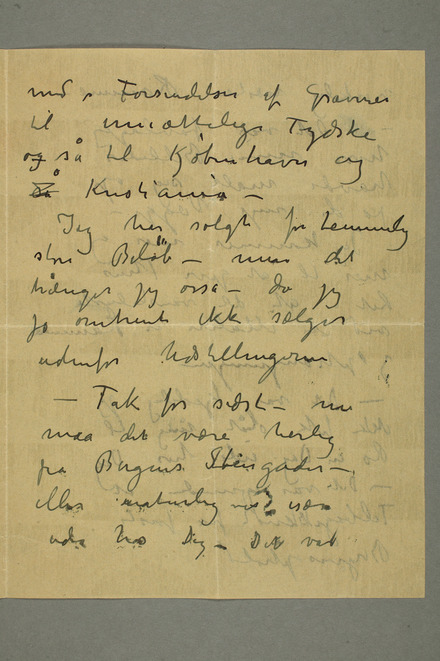 med Forsendelser af Gravurer
til umættelige Tydske
og så til Kjøbenhavn og
så Kristiania –
Jeg har solgt for temmelig
store Beløb – men det
trænger jeg også – da jeg
jo omtrent ikk sælger
udenfor Udstillingerne
– Tak for sidst – nu
maa det være herlig
fra Byens Stengader –
eller naturlig vis især
ude hos Dig – Det var